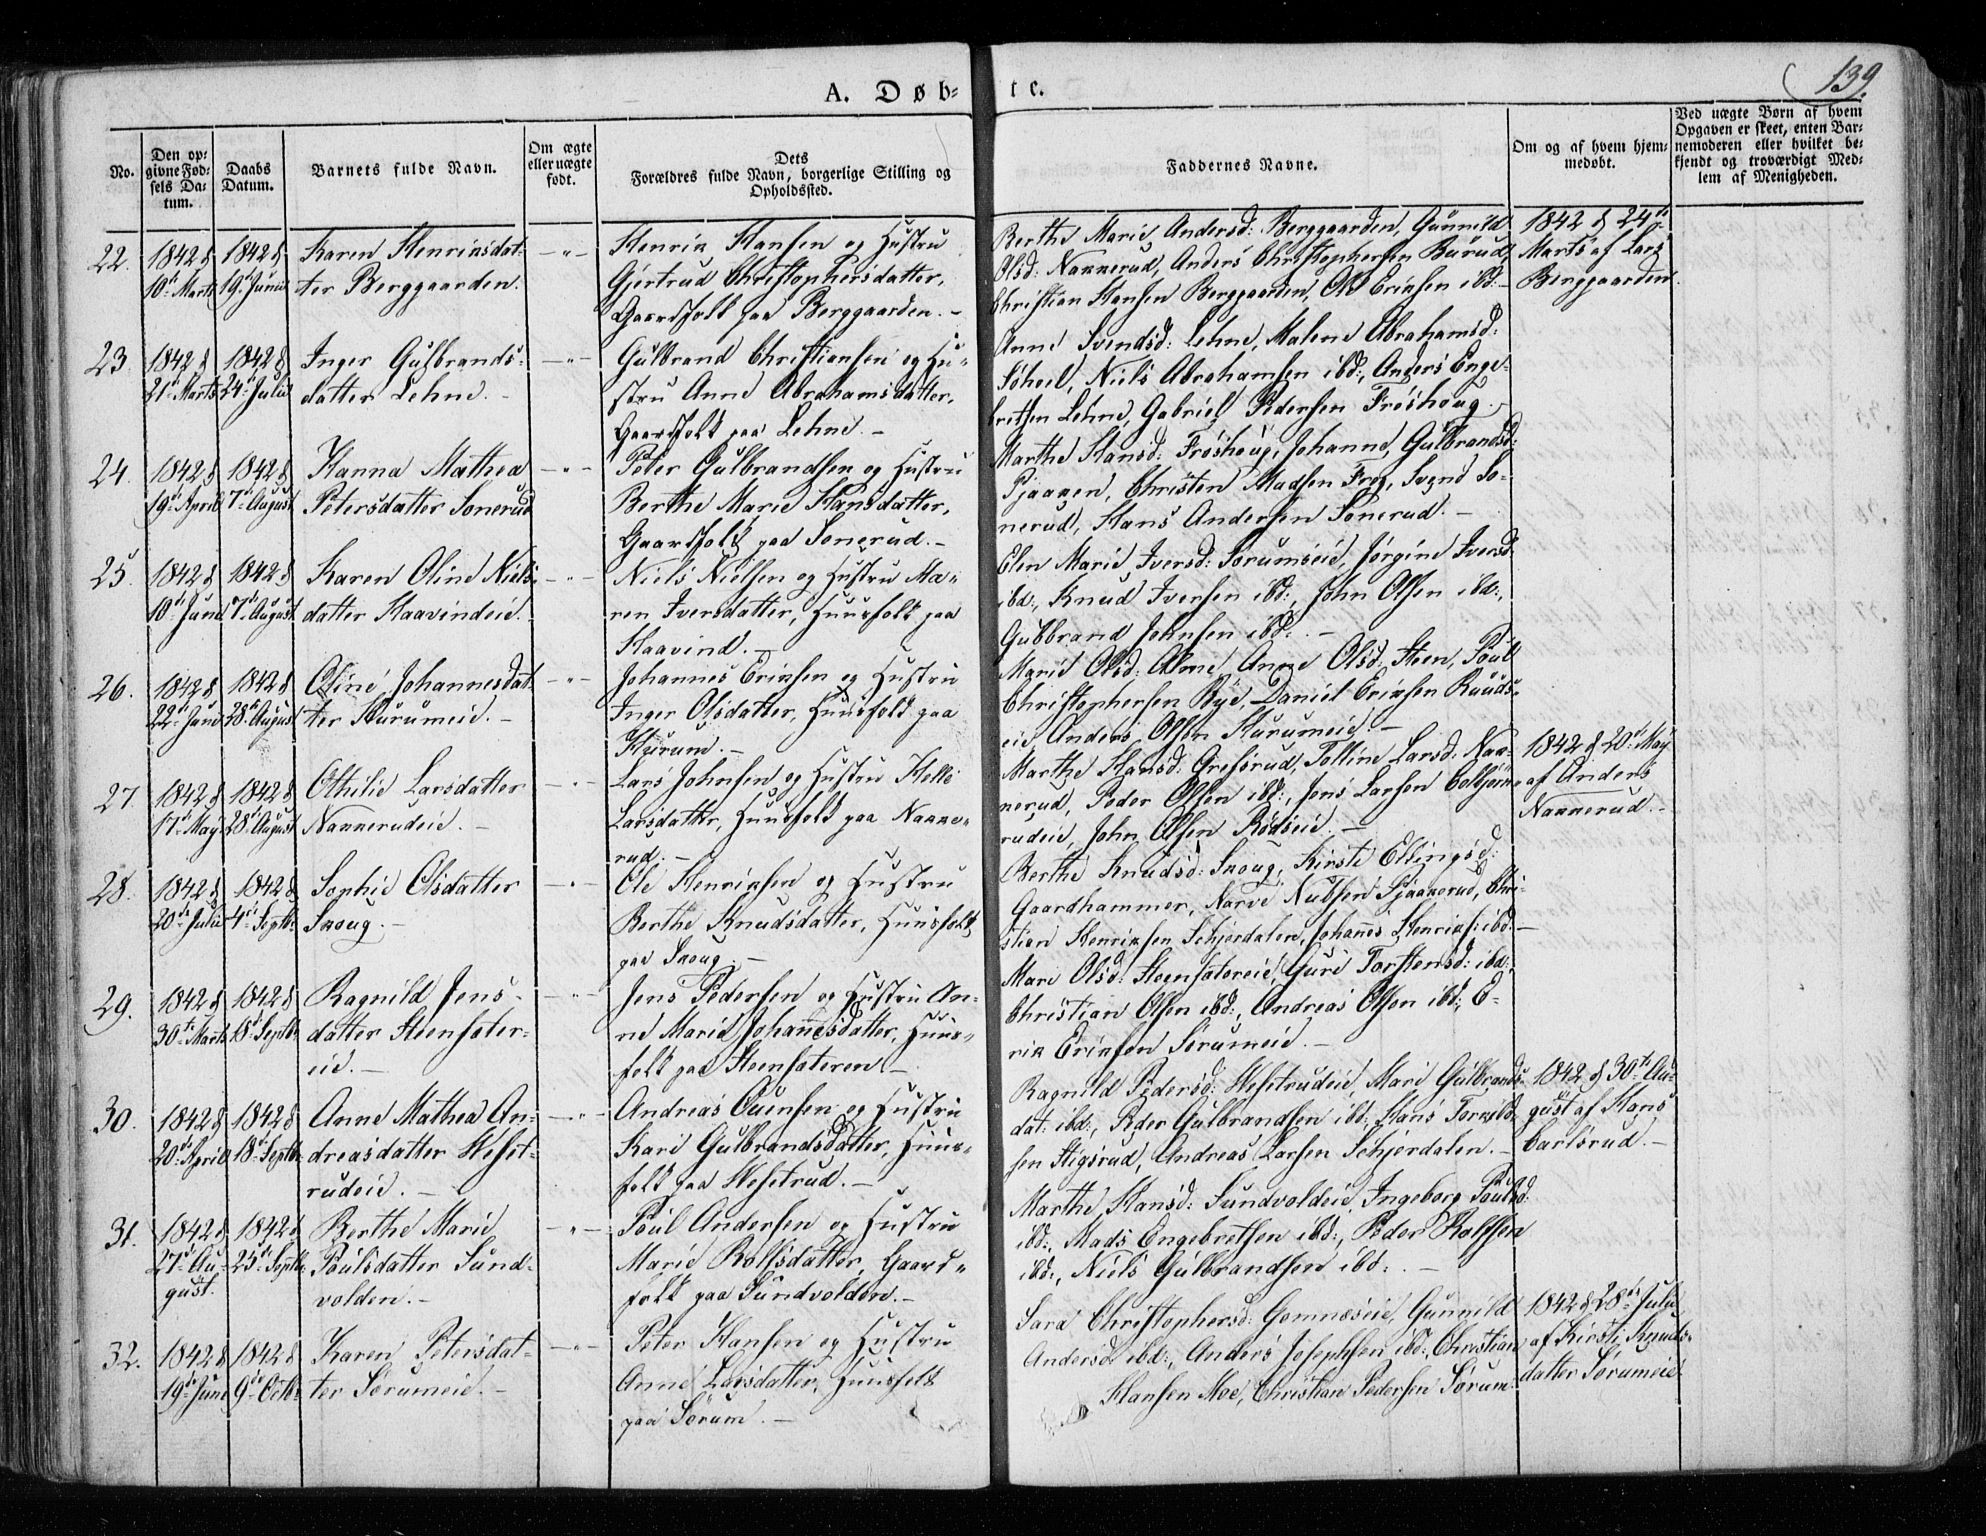 139.
A. Døb-
te.
No.
Den op-
givne Fød-
sels Da-
tum.
Daabs
Datum.
Barnets fulde Navn.
Om ægte
eller uægte
født.
Dets
Forældres fulde Navn, borgerlige Stilling og
Opholdssted.
Faddernes Navne.
Om og af hvem hjem-
medøbt.
Ved uægte Børn af hvem
Opgaven er skeet, enten Bar-
nemoderen eller hvilket be-
kjendt og troværdigt Med-
lem af Menigheden.
22.
1842 d
10de Marts
1842 d
19de Junii
Karen Henriksdat-
ter Berggaarden.
— " —
Henrik Hansen og Hustru
Gjertrud Christophersdatter,
Gaardfolk paa Berggaarden. —
Berthe Marie Andersd: Berggaarden, Gunnild
Olsd: Nakkerud, Anders Christophersen Burud,
Christian Hansen Berggaarden, Ole Eriksen ibd: —
1842 d 24de
Marts af Lars
Berggaarden
23.
1842 d
21de Marts
1842 d
24de Julii
Inger Gulbrands-
datter Lehne. —
— " —
Gulbrand Christiansen og Hu-
stru Anne Abrahamsdatter,
Gaardfolk paa Lehne. —
Anne Svendsd: Lehne, Malene Abrahamsd:
Søhoel, Niels Abrahamsen ibd:, Anders Enge-
bretsen Lehne, Gabriel Pedersen Frøshoug. —
24.
1842 d
19de April
1842 d
7de August
Hanna Mathea
Petersdatter Sonerud
— " —
Peter Gulbrandsen og Hustru
Berthe Marie Hansdatter,
Gaardfolk paa Sonerud. —
Marthe Hansd: Frøshoug, Johanne Gulbrandsd:
Pjaaken, Christen Madsen Frog, Svend So-
nerud, Hans Andersen Sonerud. —
25.
1842 d
10de Juni
1842 d
7de August
Karen Oline Niels-
datter Haavindeie.
— " —
Niels Nielsen og Hustru Ma-
ren Iversdatter, Huusfolk paa
Haavind. —
Elen Marie Iversd: Sørumseie, Jørgine Iversd
ibd:, Knud Iversen ibd:, John Olsen ibd:,
Gulbrand Johnsen ibd: —
26.
1842 d
22de Juni
1842 d
28de August
Oline Johannesdat-
ter Hurumeie. —
— " —
Johannes Eriksen og Hustru
Inger Olsdatter, Huusfolk paa
Hurum. —
Marie Olsd: Alme, Anne Olsd: Steen, Poul
Christophersen Bye, Daniel Eriksen Ruuds-
eie, Anders Olsen Hurumeie. —
27
1842 d
17de May
1842 d
28de August
Othilie Larsdatter
Nakkerudeie. —
— " —
Lars Johnsen og Hustru Helle
Larsdatter, Huusfolk paa Nakke-
rud. —
Marthe Hansd: Grefsrud, Tolline Larsd: Nak-
kerud, Peder Olsen ibd:, Jens Larsen
rudeie, John Olsen Rødseie. —
1842 d 20de May
af Anders
Nakkerud. —
28.
1842 d
20de Julii
1842 d
4de Septb:
Sophie Olsdatter
Skoug. —
— " —
Ole Henriksen og Hustru
Berthe Knudsdatter, Huusfolk
paa Skoug. —
Berthe Knudsd: Skoug, Kirsti Ellingsd:
Gaardhammer, Narve Nutsen Pjaakerud, Chri-
stian Henriksen Schjerdalen, Johannes Henriks: ibd: —
29.
1842 d
30de Marts
1842 d
18de Septb:
Ragnild Jens-
datter Steensæter-
eie. —
— " —
Jens Pedersen og Hustru An-
ne Marie Johannesdatter, Huus-
folk paa Steensæteren —
Mari Olsd: Steensætereie, Guri Torstensd: ibd:,
Christian Olsen ibd:, Andreas Olsen ibd:, E-
rik Eriksen Sørumeie. —
30.
1842 d
20de April
1842 d
18de Septb:
Anne Mathea An-
dreasdatter Hefst-
rudeie. —
— " —
Andreas Evensen og Hustru
Kari Gulbrandsdatter, Huus-
folk paa Hefstrud. —
Ragnild Pedersd: Hefstrudeie, Mari Gulbrands-
dat: ibd:, Peder Gulbrandsen ibd:, Hans Torkild-
sen Stigsrud, Andreas Larsen Schjerdalen. —
1842 d 30te Au-
gust af Hans
Carlsrud. —
31.
1842 d
27de Au-
gust.
1842 d
25de Septb:
Berthe Marie
Poulsdatter Sund-
volden. —
— " —
Poul Andersen og Hustru
Marie Rolfsdatter, Gaard-
folk paa Sundvolden. —
Marthe Hansd: Sundvoldeie, Ingeborg Poulsd:
ibd:, Mads Engebretsen ibd:, Peder Rolfsen
ibd:, Niels Gulbrandsen ibd: —
32.
1842 d
19de Juni
1842 d
9de Octb:
Karen Petersdat-
ter Sørumeie. —
— " —
Peter Hansen og Hustru
Anne Larsdatter, Huusfolk
paa Sørum. —
Sara Christophersd: Gomnæseie, Gunnild
Andersd: ibd:, Anders Josephsen ibd:, Christian
Hansen Moe, Christian Pedersen Sørum.
1842 d 28de Julii
af Kirsti Knuds-
datter Sørumeie